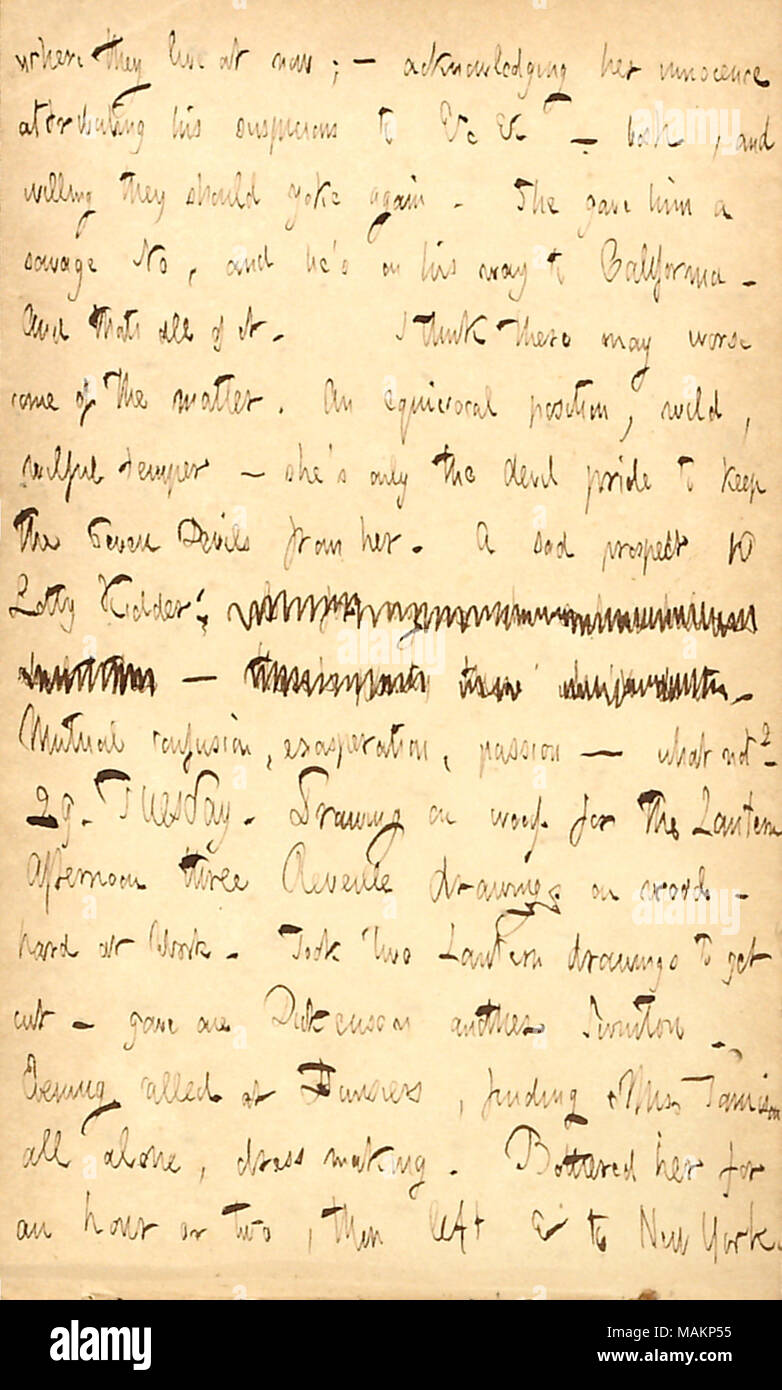 where they live at now; — acknowledging her innocence
attributing his suspicions to &c &c — bosh, and
willing they should yoke again. She gave him a
savage No, and he's on his way to California.
And thats all of it. I think there may worse
come of the matter. An equivocal position, wild,
wilful temper — she's only the devil pride to keep
the Seven Devils from her. A sad prospect to
Lotty Kidder
Mutual confusion, exasperation, passion — what not?
29. Tuesday. Drawing on wood for the Lantern
Afternoon three Reveille drawings on wood -
hard at work. Took two Lantern drawings to get
cut - gave one Dickenson another Swinton.
Evening called at Dunsiers, finding Miss Jamison
all alone, dress making. Bothered her for
an hour or two, then left & to New York.
alamy
alamy
alamy
alamy
Image ID: MAKP55
www.alamy.com